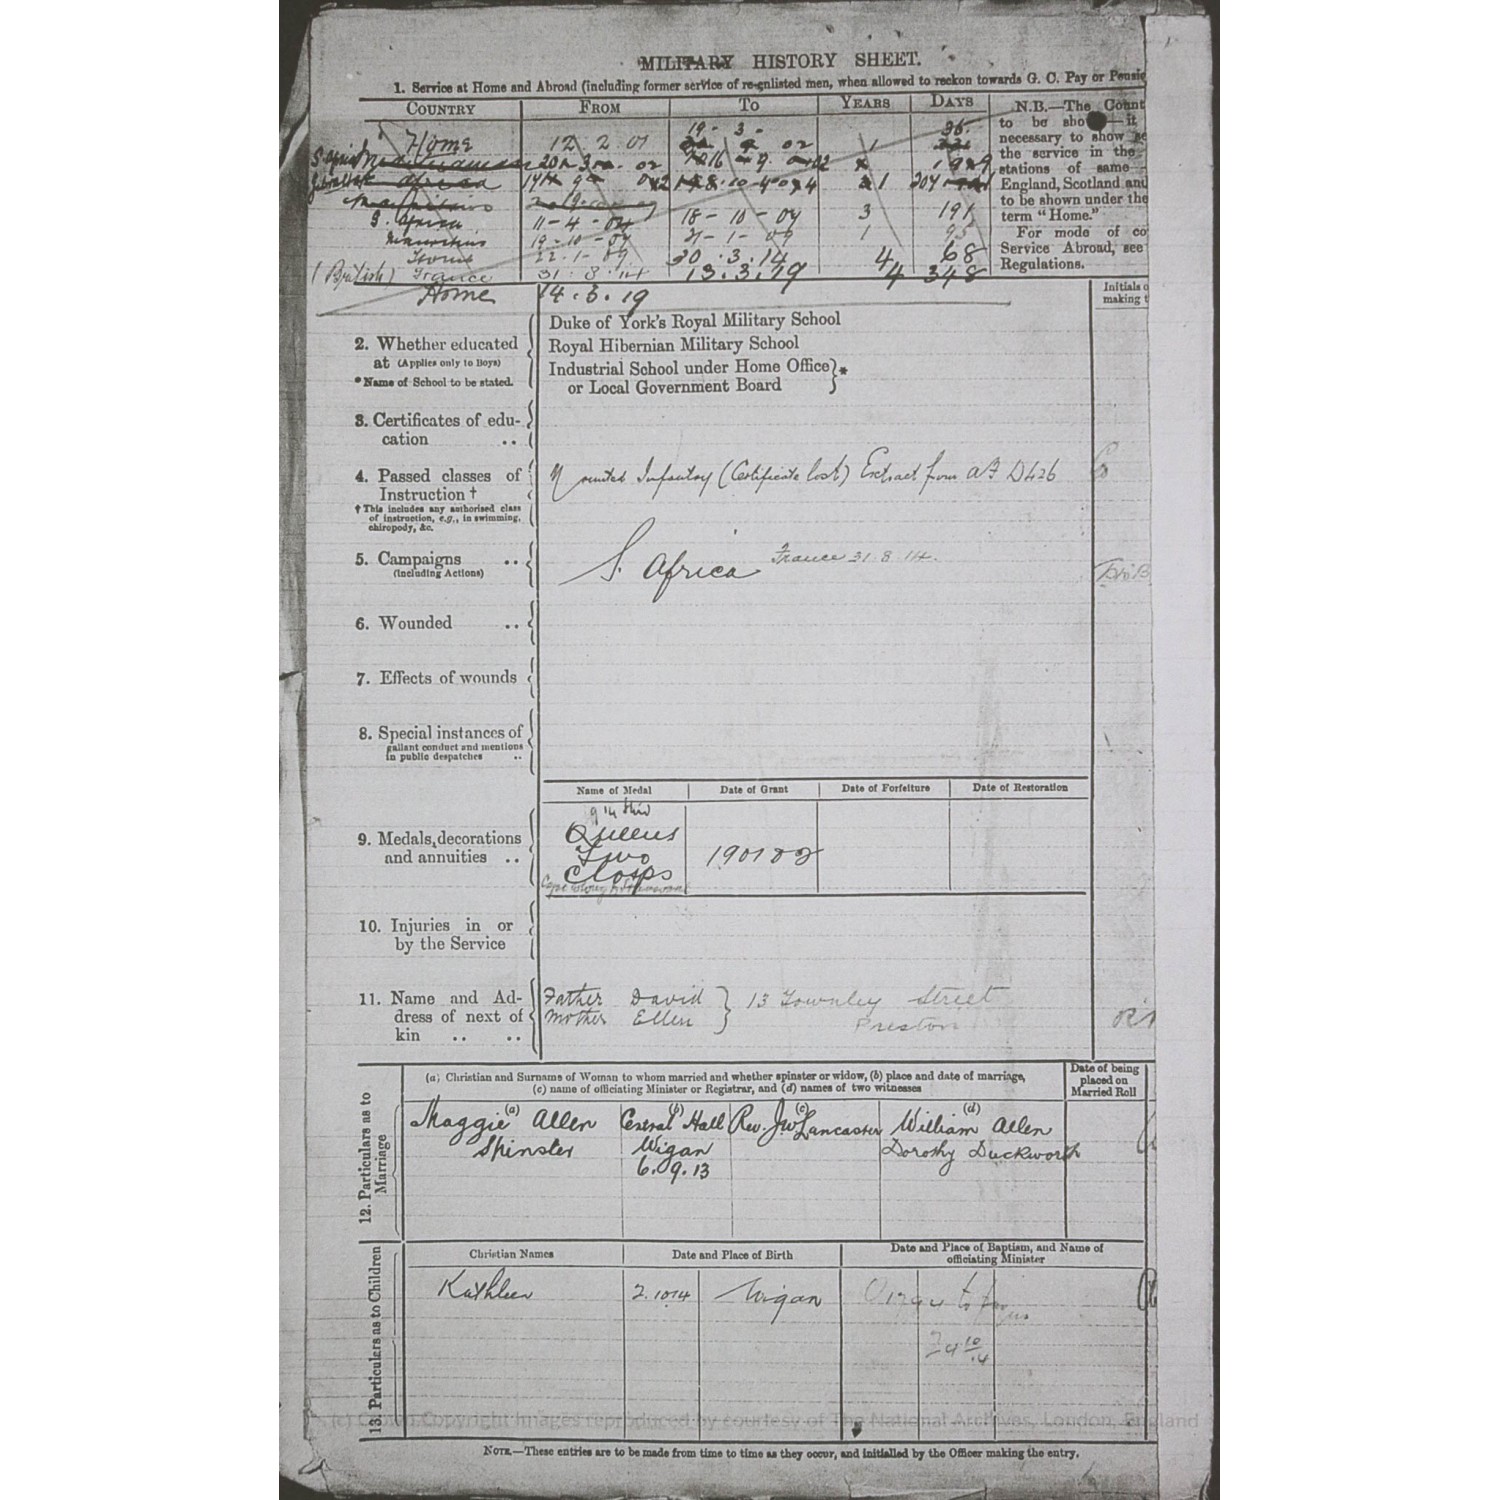 MILITARY HISTORY SHEET.
1. Service at Home and Abroad (including former service of re-enlisted men, when allowed to reckon towards G. C. Pay or Pensio
COUNTRY FROM TO YEARS DAYS
Home 12 2 07 19-3- 1 36
S. Africa 20 3 02 16 9 02
14 9 02 10-4-04 1 204
S. Africa 11-4-04 18-10-07 3 191
Mauritius 19-10-07 21-1-09 1 95
Home 22-1-09 30.3.14 4 68
(British) France 31.8.14 13.3.19 4 348
Home 14.3.19
N.B.—The Count
to be sho — it
necessary to show se
the service in the
stations of same
England, Scotland and
to be shown under the
term "Home."
For mode of co
Service Abroad, see
Regulations.
Initials o
making t
2. Whether educated
at (Applies only to Boys)
* Name of School to be stated.
Duke of York's Royal Military School
Royal Hibernian Military School
Industrial School under Home Office
or Local Government Board } *
3. Certificates of edu-
cation ..
4. Passed classes of
Instruction †
† This includes any authorised class
of instruction, e.g., in swimming,
chiropody, &c.
Mounted Infantry (Certificate lost) Extract from AF D426
5. Campaigns ..
(including Actions)
S. Africa France 31.8.14.
6. Wounded ..
7. Effects of wounds
8. Special instances of
gallant conduct and mentions
in public despatches ..
Name of Medal Date of Grant Date of Forfeiture Date of Restoration
9. Medals, decorations
and annuities ..
Queens
Two
Clasps
1901 02
10. Injuries in or
by the Service
11. Name and Ad-
dress of next of
kin .. ..
Father David } 13 Townley Street
Mother Ellen Preston
12. Particulars as to
Marriage
(a) Christian and Surname of Woman to whom married and whether spinster or widow, (b) place and date of marriage,
(c) name of officiating Minister or Registrar, and (d) names of two witnesses
Date of being
placed on
Married Roll
(a) (b) (c) (d)
Maggie Allen Central Hall Rev. J W Lancaster William Allen
Spinster Wigan Dorothy Duckworth
6.9.13
13. Particulars as to Children
Christian Names Date and Place of Birth Date and Place of Baptism, and Name of
officiating Minister
Kathleen 2.10 14 Wigan
(c) Crown Copyright Images reproduced by courtesy of The National Archives, London, England
NOTE.—These entries are to be made from time to time as they occur, and initialled by the Officer making the entry.